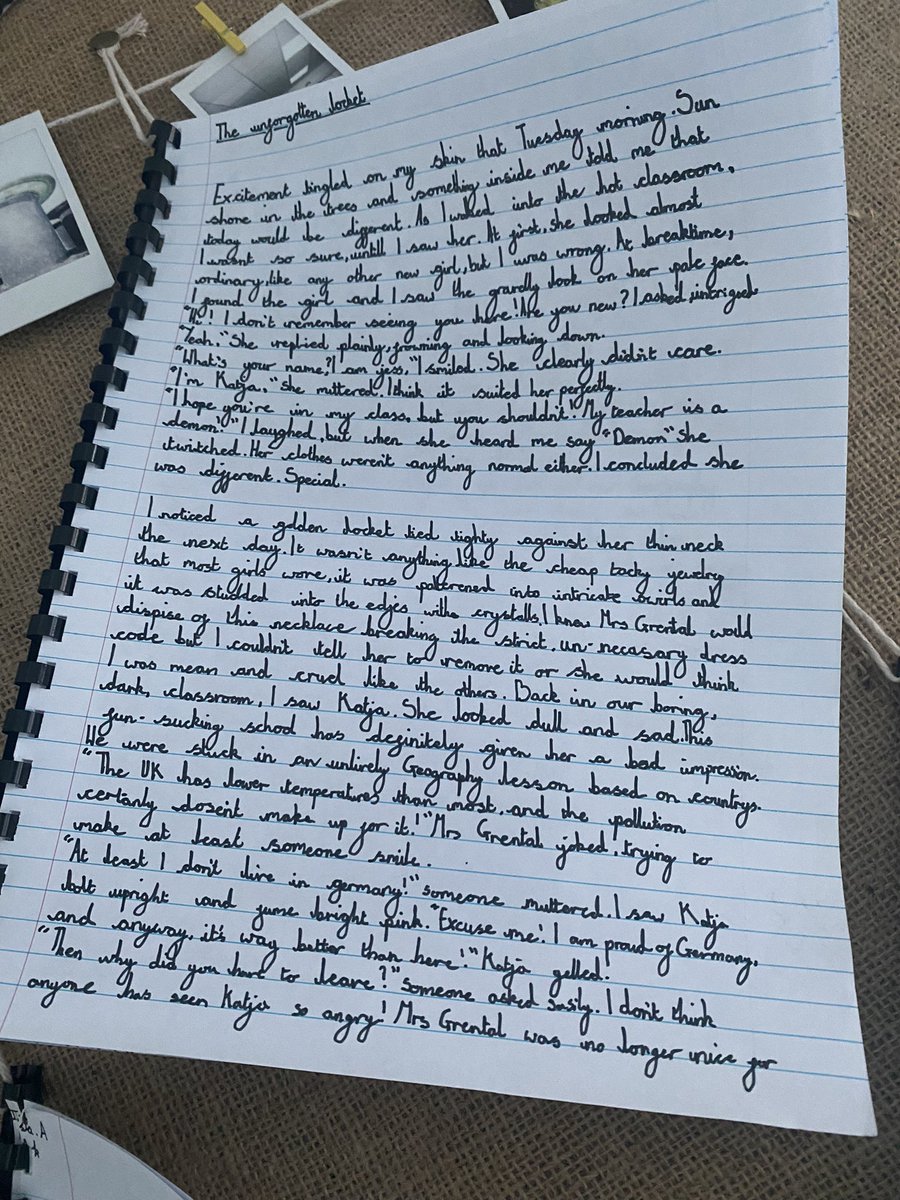 The unforgotten locket
Excitement tingled on my skin that Tuesday morning. Sun
shone in the trees and something inside me told me that
today would be different. As I walked into the hot classroom,
I wasnt so sure, untill I saw her. At first, she looked almost
ordinary, like any other new girl, but I was wrong. At breaktime,
I found the girl and I saw the gravelly look on her pale face.
"Hi! I don't remember seeing you here! Are you new? I asked, intrigued
"Yeah." She replied plainly, frowning and looking down.
"What's your name? I am jess," I smiled. She clearly didn't care.
"I'm Katja," she muttered. I think it suited her perfectly.
"I hope you're in my class, but you shouldn't. My teacher is a
demon!" I laughed, but when she heard me say "Demon" she
twitched. Her clothes weren't anything normal either. I concluded she
was different. Special.
I noticed a golden locket tied tighty against her thin neck
the next day. It wasn't anything like the cheap tacky jewelry
that most girls wore, it was patterened into intricate swirls and
it was studded into the edjes with crystalls. I knew Mrs Grental would
dispise of this necklace breaking the strict, un-necasary dress
code but I couldn't tell her to remove it or she would think
I was mean and cruel like the others. Back in our boring,
dark, classroom, I saw Katja. She looked dull and sad. This
fun-sucking school has definitely given her a bad impression.
We were stuck in an unlively Geography lesson based on countrys.
"The UK has lower temperatures than most, and the pollution
certanly doseint make up for it!" Mrs Grental joked, trying to
make at least someone smile.
"At least I don't live in germany!" someone muttered. I saw Katja
bolt upright and fume bright pink. "Excuse me! I am proud of Germany,
and anyway, it's way better than here!" Katja yelled.
"Then why did you have to leave?" someone asked sasily. I don't think
anyone has seen Katja so angry! Mrs Grental was no longer nice for